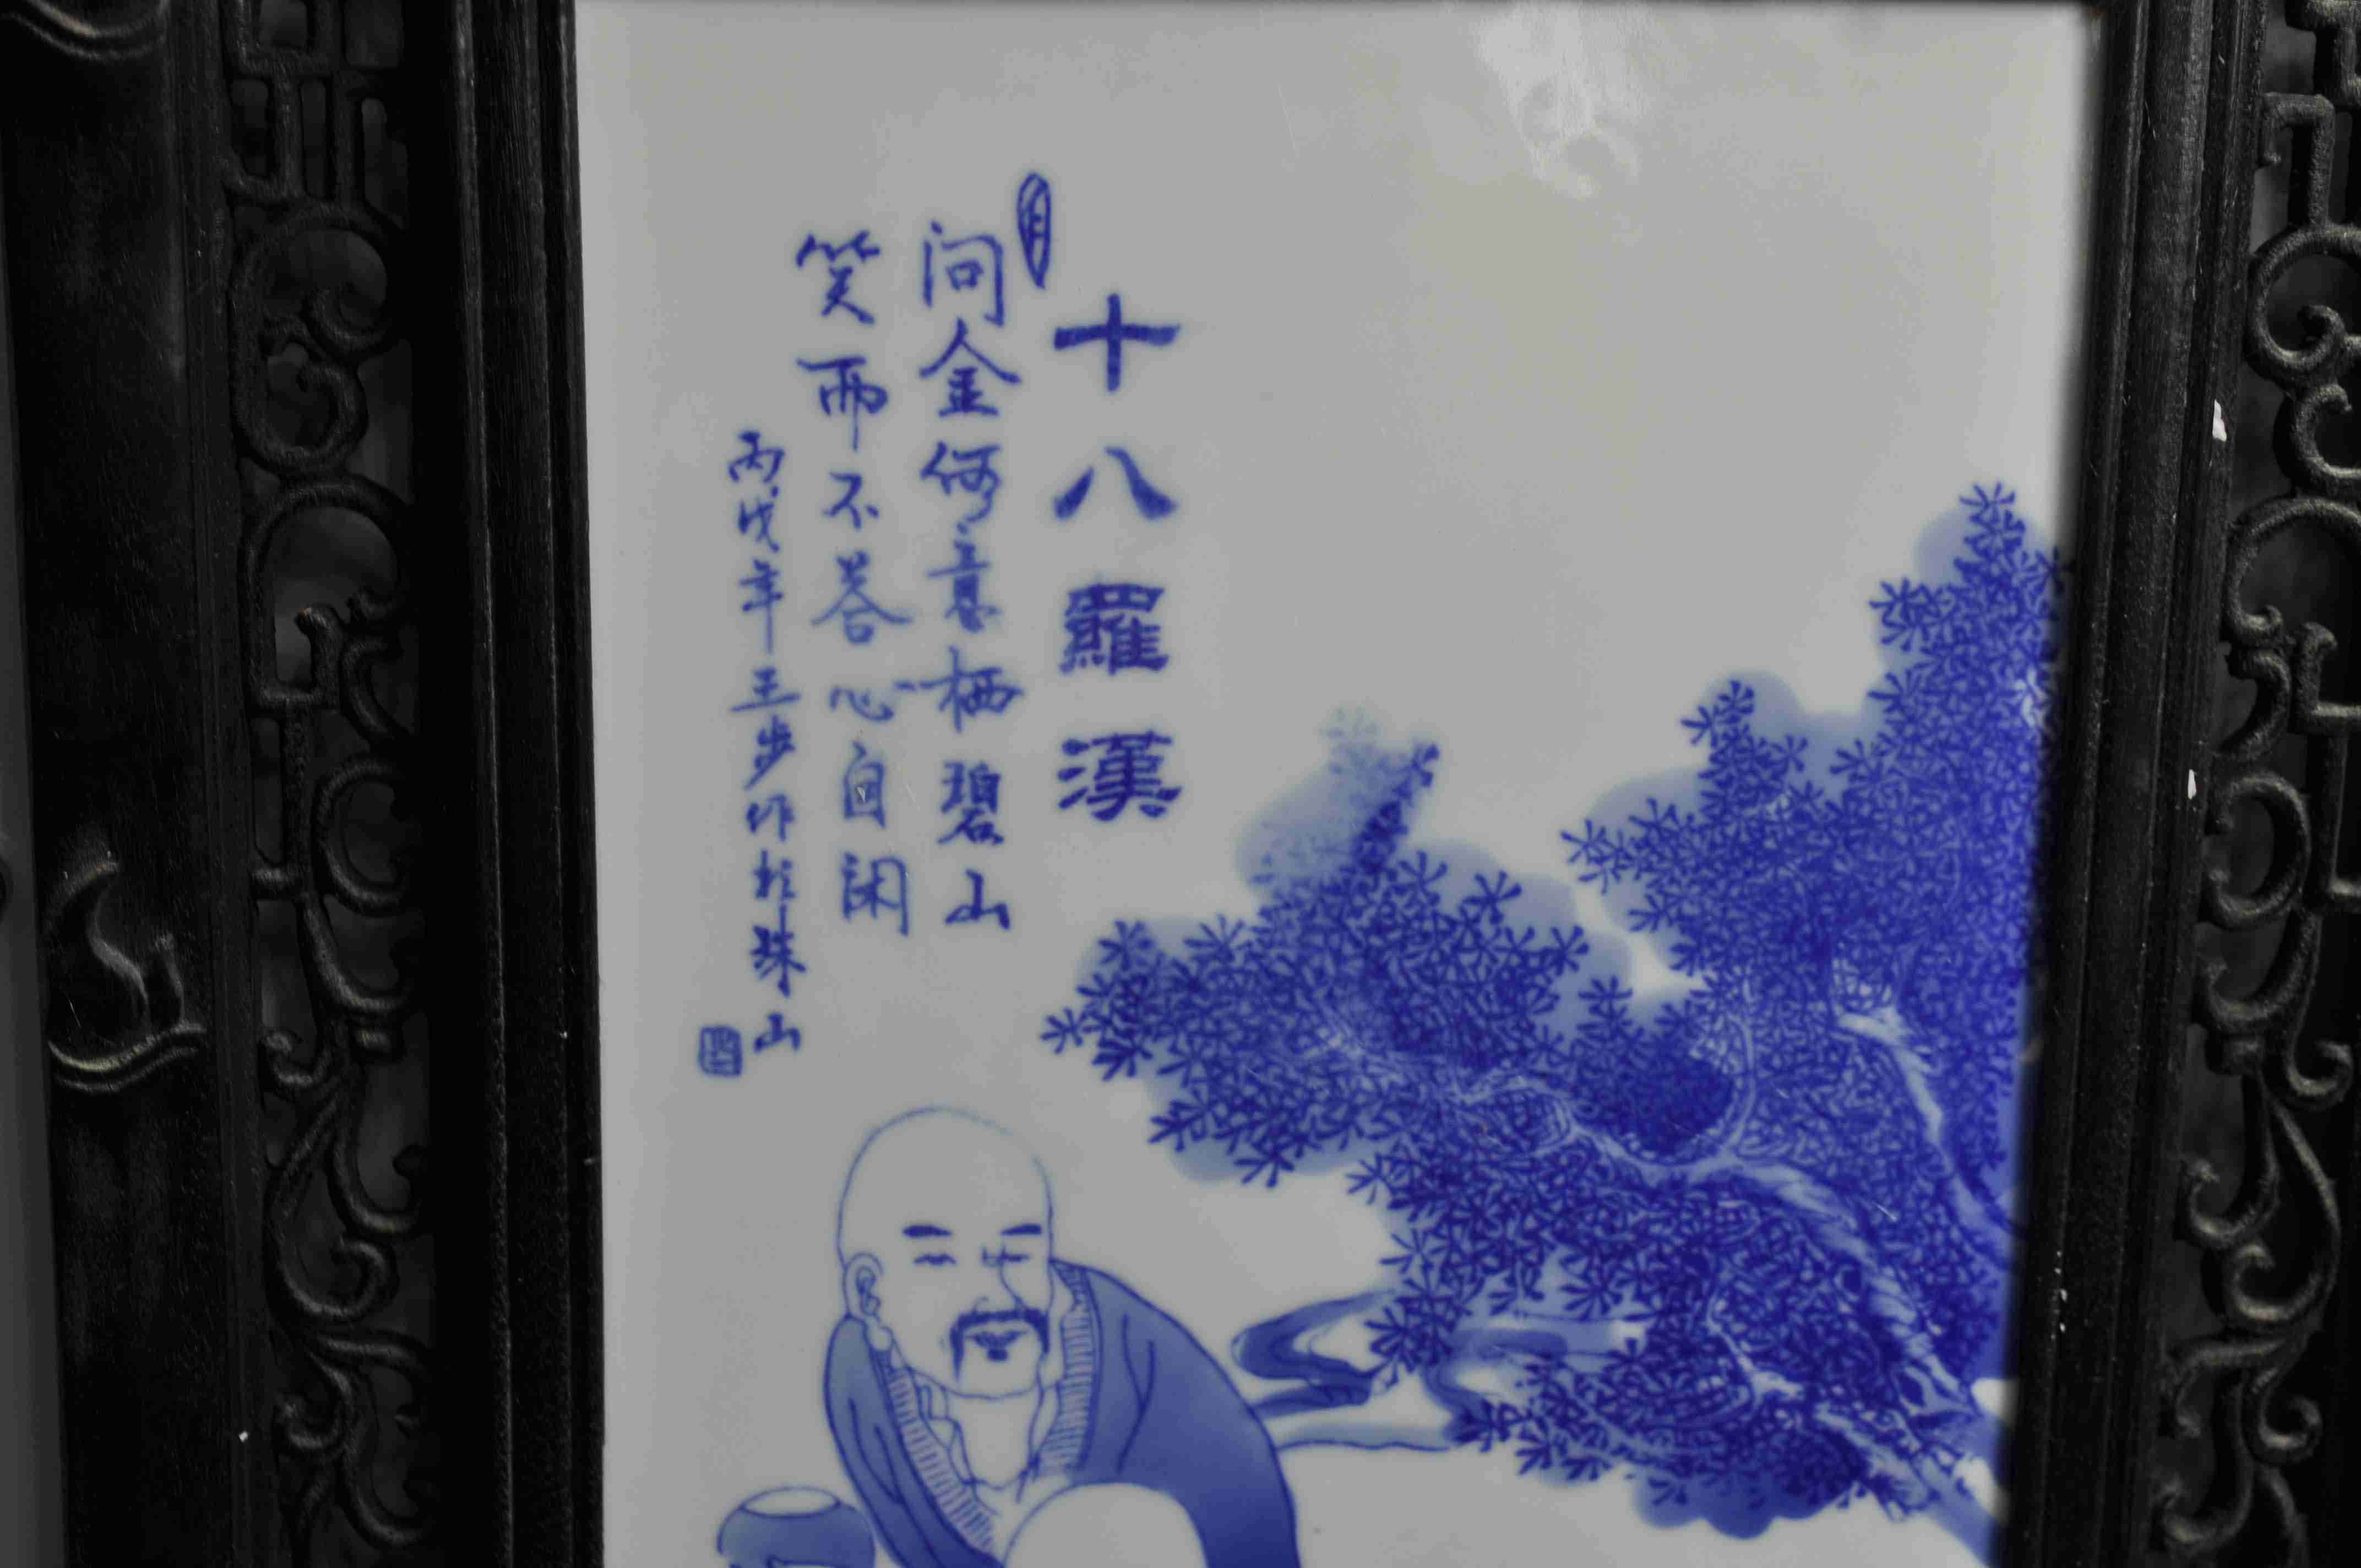 十八羅漢
月
问金何意栖碧山
笑而不答心自闲
丙戌年王步作於珠山